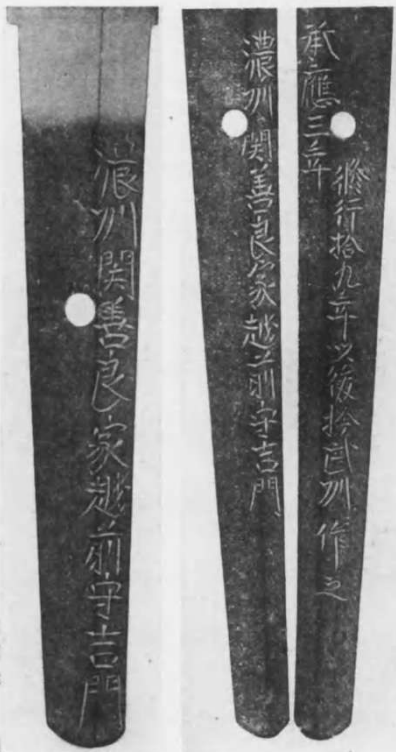 濃州関善良家越前守吉門
濃州関善良家越前守吉門
承應三年
脩行拾九年以後扵武州作之